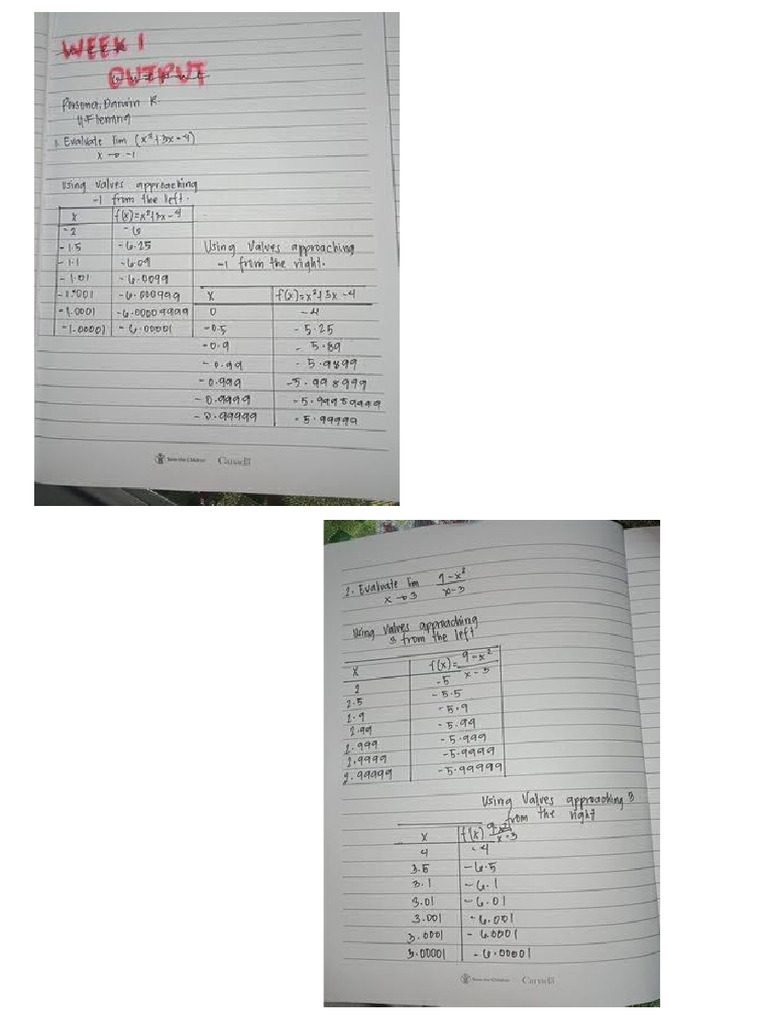 WEEK 1
OUTPUT
Darwin K.
11-Fleming
1. Evaluate lim (x²+3x-4)
x→-1
Using Values approaching
-1 from the left.
x f(x)=x²+3x-4
-2 -6
-1.5 -6.25
-1.1 -6.09
-1.01 -6.0099
-1.001 -6.000999
-1.0001 -6.00009999
-1.00001 -6.00001
Using Values approaching
-1 from the right.
x f(x)=x²+3x-4
0 -4
-0.5 -5.25
-0.9 -5.89
-0.99 -5.9899
-0.999 -5.998999
-0.9999 -5.99989999
-0.99999 -5.99999
Save the Children Canada
2. Evaluate lim 9-x²
x→3 x-3
Using Values approaching
3 from the left
x f(x)= 9-x²
x-3
2 -5
2.5 -5.5
2.9 -5.9
2.99 -5.99
2.999 -5.999
2.9999 -5.9999
2.99999 -5.99999
Using Values approaching 3
from the right
x f(x) 9-x²
x-3
4 -4
3.5 -6.5
3.1 -6.1
3.01 -6.01
3.001 -6.001
3.0001 -6.0001
3.00001 -6.00001
Save the Children Canada